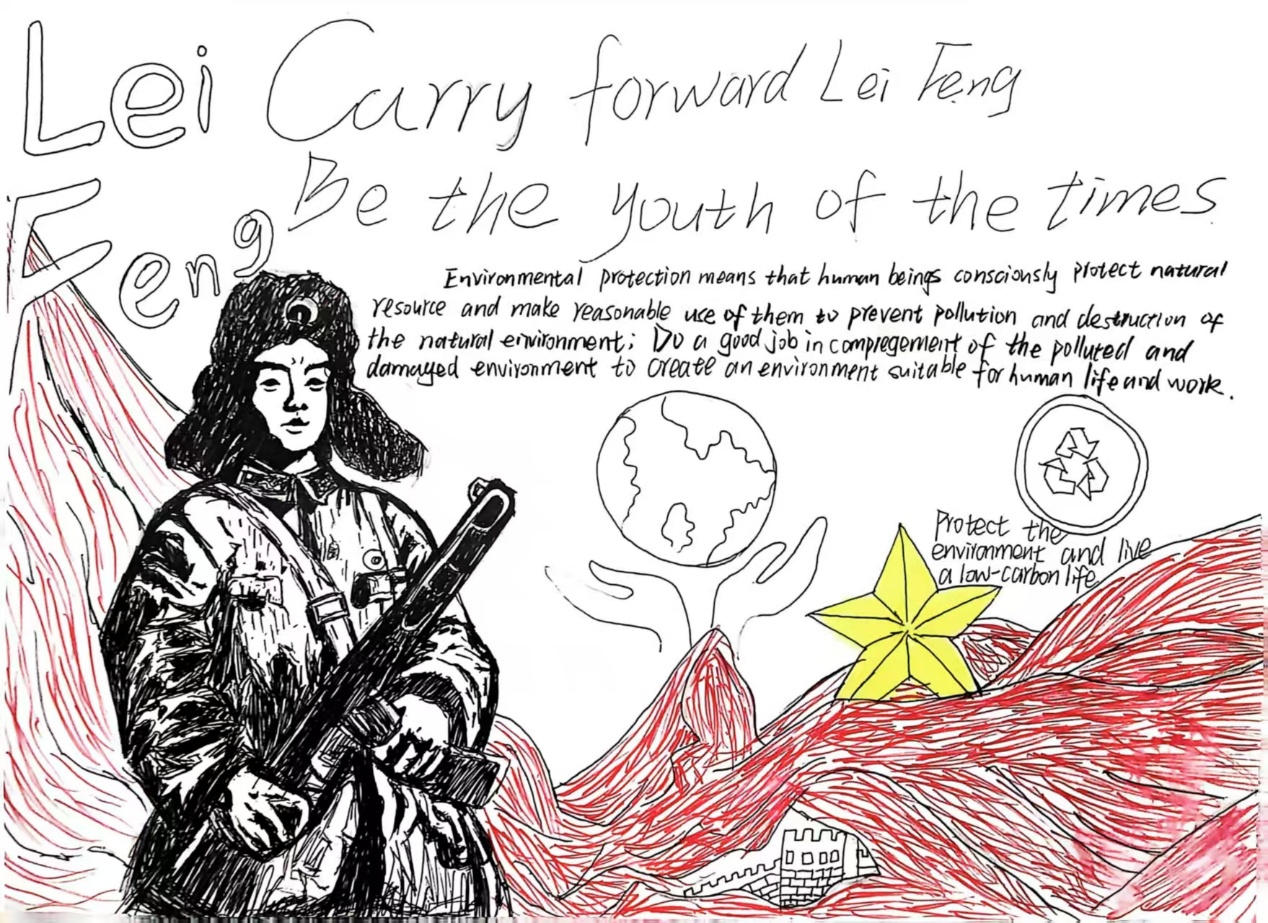 Lei
Feng
Carry forward Lei Feng
Be the youth of the times
Environmental protection means that human beings consciously protect natural
resource and make reasonable use of them to prevent pollution and destruction of
the natural environment; Do a good job in compregement of the polluted and
damaged environment to create an environment suitable for human life and work.
Protect the
environment and live
a low-carbon life